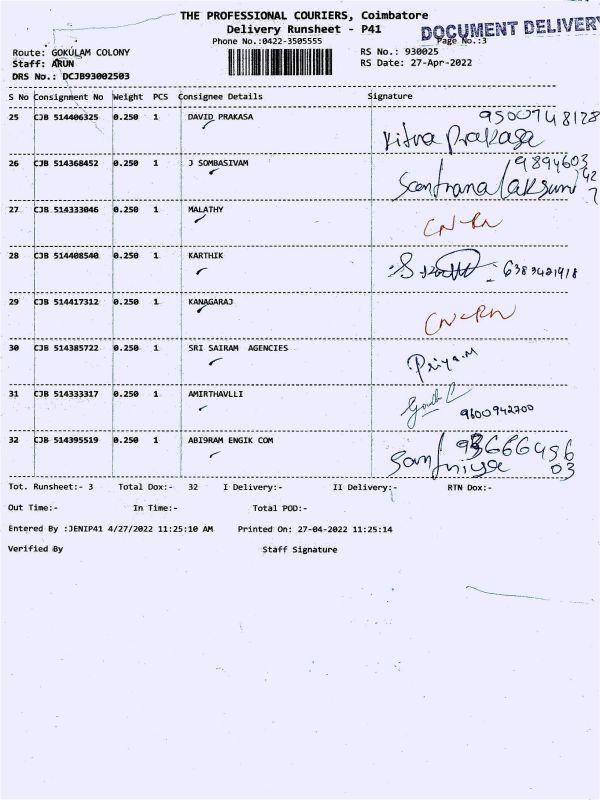 THE PROFESSIONAL COURIERS, Coimbatore
Delivery Runsheet - P41
DOCUMENT DELIVERY
Phone No.:0422-3505555
Page No.:3
Route: GOKULAM COLONY
RS No.: 930025
Staff: ARUN
RS Date: 27-Apr-2022
DRS No.: DCJB93002503
S No Consignment No Weight PCS Consignee Details Signature
25 CJB 514406325 0.250 1 DAVID PRAKASA 9500748128
Prakasa
26 CJB 514368452 0.250 1 J SOMBASIVAM 9894603
42
7
27 CJB 514333046 0.250 1 MALATHY CN-RN
28 CJB 514408540 0.250 1 KARTHIK 6383421918
29 CJB 514417312 0.250 1 KANAGARAJ CN-RN
30 CJB 514385722 0.250 1 SRI SAIRAM AGENCIES Priya.M
31 CJB 514333317 0.250 1 AMIRTHAVLLI
9600942700
32 CJB 514395519 0.250 1 ABI9RAM ENGIK COM
03
Tot. Runsheet:- 3 Total Dox:- 32 I Delivery:- II Delivery:- RTN Dox:-
Out Time:- In Time:- Total POD:-
Entered By :JENIP41 4/27/2022 11:25:10 AM Printed On: 27-04-2022 11:25:14
Verified By Staff Signature